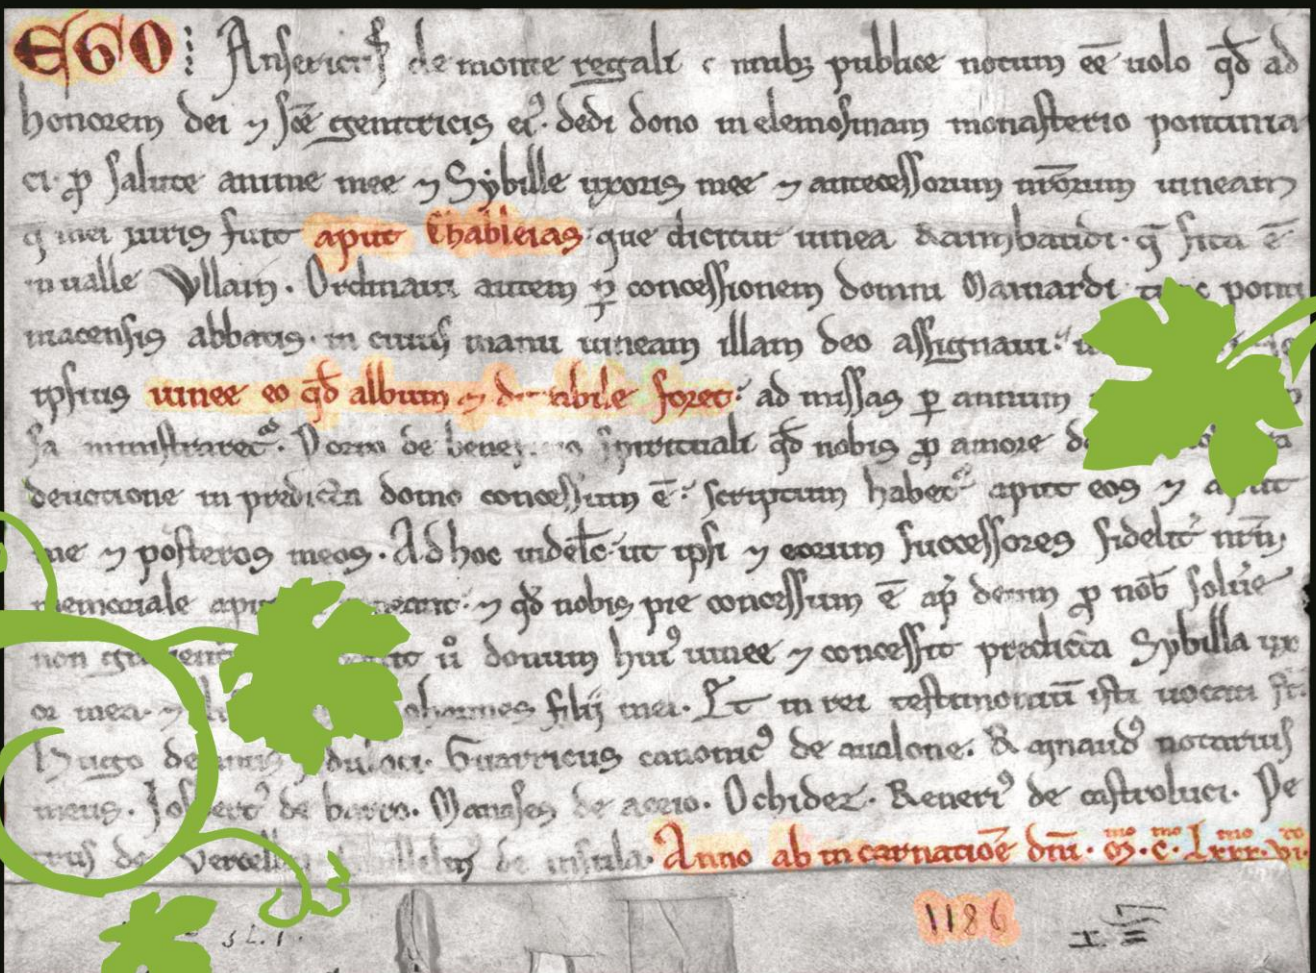 EGO Ansericus de monte regali omnibus publice notum eē uolo qd̄ ad
honorem dei ⁊ sc̄e genitricis ei⁹. dedi dono in elemosinam monasterio pontinia
ci. p̄ salute anime mee ⁊ Sybille uxoris mee ⁊ antecessorum nr̄orum uineam
q mei iuris fuit aput Chableias que dicitur uinea Rambaudi. q̄ sita ē
in ualle Vllain. Ordinaui autem p̲ concessionem domni Mainardi tunc ponti
niacensis abbatis. in cuius manu uineam illam deo assignaui.
ipsius uinee eo qd̄ album ⁊ durabile foret: ad missas p̲ annum
sa ministraret᷑. Porro de spirituali qd̄ nobis p̄ amore
deuotione in predicta domo concessum ē: scriptum habet᷑ aput eos ⁊ aput
me ⁊ posteros meos. Ad hoc uidelꝫ: ut ipsi ⁊ eorum successores fidelit᷑ nr̄m
memoriale ⁊ qd̄ nobis pie concessum ē ap̲ deum p̄ nob̄ soluere
non u̇ donum hui⁹ uinee ⁊ concessit predicta Sybilla ux
or mea. ⁊ Johannes filij mei. Et in rei testimonium isti uocati st̄
Hugo de Guarricus canonic⁹ de aualone. Rainaud⁹ notarius
meus. Josbert⁹ de barro. Manases de acrio. Ochidez. Reneri⁹ de castroluci. Pe
trus de Vercell de insula. Anno ab incarnatiōe dn̄i. mo. c. mo Lxxx. mo vi. to
1186